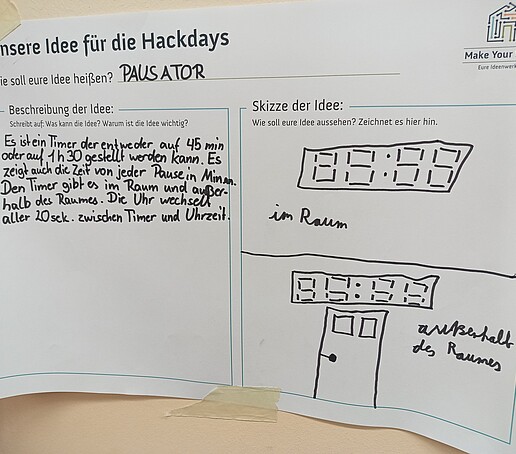 nsere Idee für die Hackdays
Make Your
Eure Ideenwerk
ie soll eure Idee heißen? PAUSATOR
Beschreibung der Idee:
Schreibt auf: Was kann die Idee? Warum ist die Idee wichtig?
Es ist ein Timer der entweder auf 45 min
oder auf 1h30 gestellt werden kann. Es
zeigt auch die Zeit von jeder Pause in Minan.
Den Timer gibt es im Raum und außer-
halb des Raumes. Die Uhr wechselt
aller 20sek. zwischen Timer und Uhrzeit.
Skizze der Idee:
Wie soll eure Idee aussehen? Zeichnet es hier hin.
88:88
im Raum
88:88
außerhalb
des Raumes